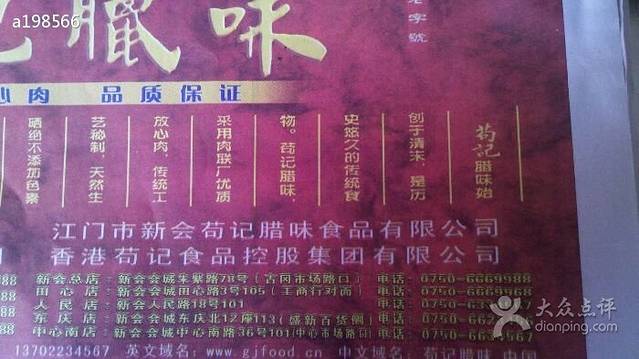 a198566
記臘味
老字號
心肉 品质保证
苟记腊味始
创于清末，是历
史悠久的传统食
物。苟记腊味，
采用肉联厂优质
放心肉，传统工
艺秘制，天然生
晒绝不添加色素
江门市新会苟记腊味食品有限公司
香港苟记食品控股集团有限公司
新会总店：新会会城朱紫路78号（古冈市场路口） 电话：0750-6669988
田心店：新会会城田心路3号105（工商行对面） 电话：0750-6
人民店：新会人民路18号101 电话：0750-63
东庆店：新会会城东庆北12座113（盛新百货侧） 电话：0750-66
中心南店：新会会城中心南路36号101（中心市场路口） 电话：0750-6634567
13702234567 英文域名：www.gjfood.cn 中文域名：苟记腊味.中国
大众点评
dianping.com